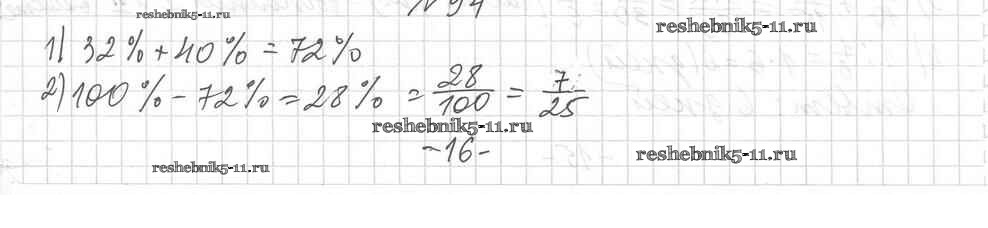 № 94
reshebnik5-11.ru
reshebnik5-11.ru
1) 32% + 40% = 72%
2) 100% - 72% = 28% = 28/100 = 7/25
reshebnik5-11.ru
-16-
reshebnik5-11.ru
reshebnik5-11.ru